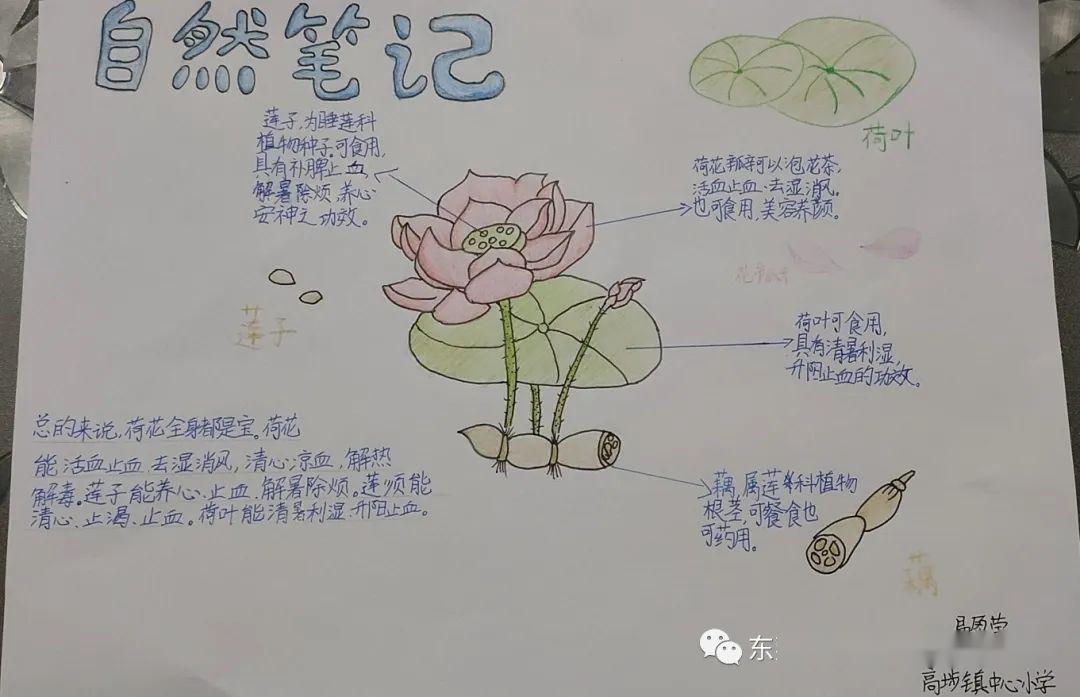 自然笔记
荷叶
莲子,为睡莲科
植物种子.可食用,
具有补脾止血,
解暑除烦,养心
安神之功效。
荷花瓣可以泡花茶,
活血止血、去湿消风。
也可食用,美容养颜。
莲子
荷叶可食用,
具有清暑利湿,
升阳止血的功效。
总的来说,荷花全身都是宝。荷花
能活血止血、去湿消风,清心凉血,解热
解毒。莲子能养心、止血、解暑除烦。莲须能
清心、止渴、止血。荷叶能清暑利湿、升阳止血。
藕,属莲科植物
根茎,可餐食也
可药用。
藕
东
高埗镇中心小学